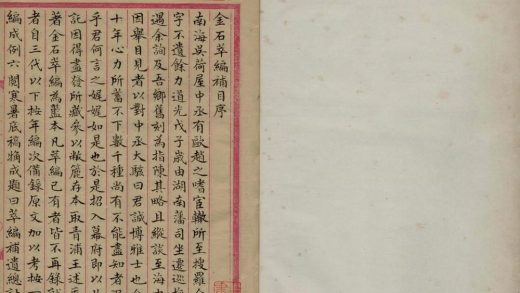 金石萃編補目序
南海吳荷屋中丞有歐趙之嗜官轍所至搜羅金
字不遺餘力道光戊子歲由湖南藩司坐遷巡撫
遇余詢及吾鄉舊刻為指陳其略且縱談至海
因舉目見者以對中丞大駭曰君誠博雅士也
十年心力所蓄不下數千種尚有不能盡知者
乎君何言之娓娓如是也於是招入幕府即以
託因得盡發所藏參以敝簏存本取青浦王述
著金石萃編為藍本凡萃編已有者皆不再錄
者自三代以下按年編次備錄原文加以考按
編成例六閱寒暑底稿犕成題曰萃編補遺總